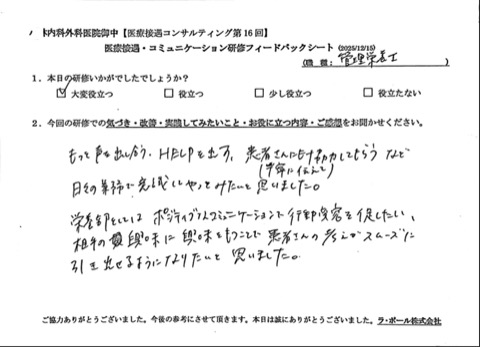 本内科外科医院御中【医療接遇コンサルティング第16回】
医療接遇・コミュニケーション研修フィードバックシート (2025/12/15)
(職種: 管理栄養士 )
1. 本日の研修いかがでしたでしょうか?
☑ 大変役立つ □ 役立つ □ 少し役立つ □ 役立たない
2. 今回の研修での気づき・改善・実践してみたいこと・お役に立つ内容・ご感想をお聞かせください。
もっと声を出し合う、HELPを出す、患者さんにも協力してもらうなど
(丁寧に伝えて)
日々の業務で意識してやってみたいと思いました。
栄養部としては ポジティブなコミュニケーションで行動変容を促したい、
相手の興味に興味をもつことで患者さんの考えがスムーズに
引き出せるようになりたいと思いました。
ご協力ありがとうございました。今後の参考にさせて頂きます。本日は誠にありがとうございました。ラ・ポール株式会社